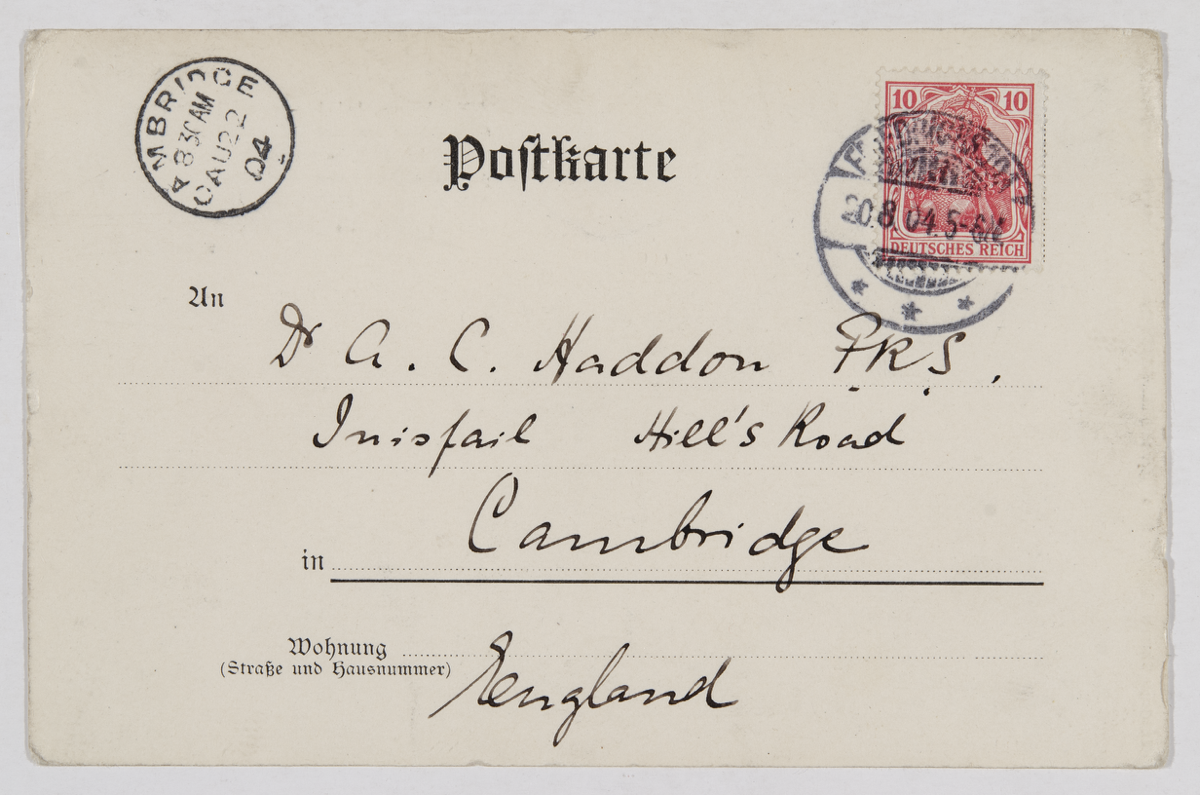 CAMBRIDGE
830AM
AU 22
04
Postkarte
10 10
20.8.04.5-6N.
DEUTSCHES REICH
An
Dr A. C. Haddon F.R.S.
Inisfail Hill's Road
in Cambridge
Wohnung
(Straße und Hausnummer)
England